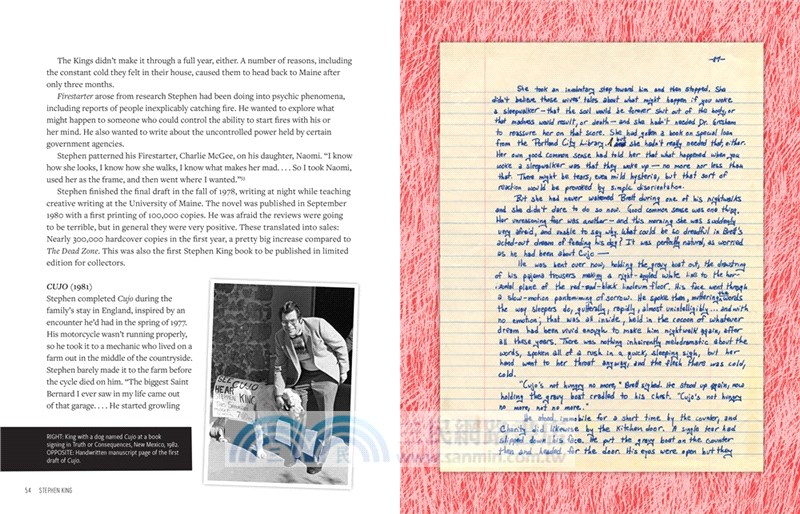 The Kings didn't make it through a full year, either. A number of reasons, including
the constant cold they felt in their house, caused them to head back to Maine after
only three months.
Firestarter arose from research Stephen had been doing into psychic phenomena,
including reports of people inexplicably catching fire. He wanted to explore what
might happen to someone who could control the ability to start fires with his or
her mind. He also wanted to write about the uncontrolled power held by certain
government agencies.
Stephen patterned his Firestarter, Charlie McGee, on his daughter, Naomi. “I know
how she looks, I know how she walks, I know what makes her mad. . . . So I took Naomi,
used her as the frame, and then went where I wanted.”
Stephen finished the final draft in the fall of 1978, writing at night while teaching
creative writing at the University of Maine. The novel was published in September
1980 with a first printing of 100,000 copies. He was afraid the reviews were going
to be terrible, but in general they were very positive. These translated into sales:
Nearly 300,000 hardcover copies in the first year, a pretty big increase compared to
The Dead Zone. This was also the first Stephen King book to be published in limited
edition for collectors.
CUJO (1981)
Stephen completed Cujo during the
family's stay in England, inspired by an
encounter he'd had in the spring of 1977.
His motorcycle wasn't running properly,
so he took it to a mechanic who lived on a
farm out in the middle of the countryside.
Stephen barely made it to the farm before
the cycle died on him. “The biggest Saint
Bernard I ever saw in my life came out
of that garage. . . . He started growling
SEE CUJO
HEAR
STEPHEN
KING
RIGHT: King with a dog named Cujo at a book
signing in Truth or Consequences, New Mexico, 1982.
OPPOSITE: Handwritten manuscript page of the first
draft of Cujo.
54 STEPHEN KING
She took an involuntary step toward him and then stopped. She
didn't believe those wives' tales about what might happen if you woke
a sleepwalker—that the soul would be forever shut out of the body, or
that madness would result, or death—and she hadn't needed Dr. Gresham
to reassure her on that score. She had gotten a book on special loan
from the Portland City Library, but she hadn't really needed that, either.
Her own good common sense had told her that what happened when you
woke a sleepwalker was that they woke up—no more nor less than
that. There might be tears, even mild hysteria, but that sort of
reaction would be provoked by simple disorientation.
But she had never wakened Brett during one of his nightwalks
and she didn't dare to do so now. Good common sense was one thing.
Her unreasoning fear was another—and this morning she was suddenly
very afraid, and unable to say why. What could be so dreadful in Brett's
acted-out dream of feeding his dog? It was perfectly natural, as worried
as he had been about Cujo—
He was bent over now, holding the gravy boat out, the drawstring
of his pajama trousers making a right-angled white line to the hor-
izontal plane of the red-and-black linoleum floor. His face went through
a slow-motion pantomime of sorrow. He spoke then, muttering the words
the way sleepers do, gutterally, rapidly, almost unintelligibly... and with
no emotion; that was all inside, held in the cocoon of whatever
dream had been vivid enough to make him nightwalk again, after
all these years. There was nothing inherently melodramatic about the
words, spoken all of a rush in a quick, sleeping sigh, but her
hand went to her throat anyway, and the flesh there was cold,
cold.
“Cujo's not hungry no more,” Brett sighed. He stood up again, now
holding the gravy boat cradled to his chest. “Cujo's not hungry
no more, not no more.”
He stood immobile for a short time by the counter, and
Charity did likewise by the kitchen door. A single tear had
slipped down his face. He put the gravy boat on the counter
then and headed for the door. His eyes were open but they
www.sanmin.com.tw